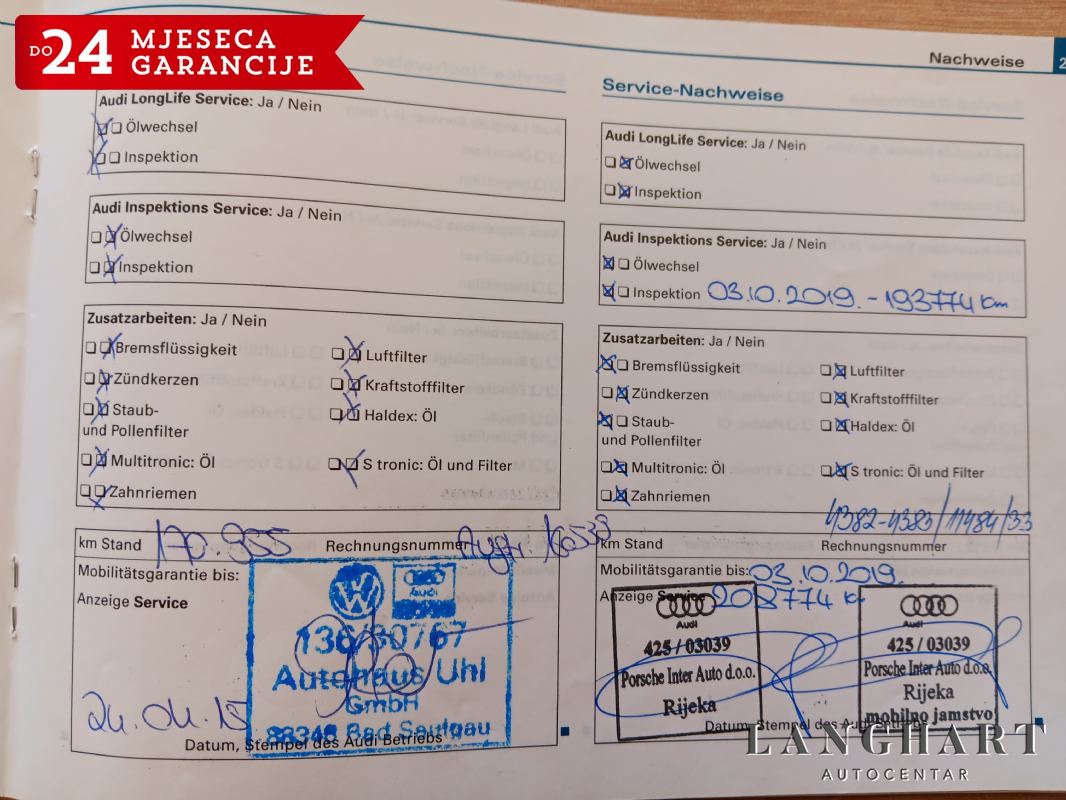 DO 24 MJESECA
GARANCIJE
Audi LongLife Service: Ja / Nein
Ölwechsel
Inspektion
Audi Inspektions Service: Ja / Nein
Ölwechsel
Inspektion
Zusatzarbeiten: Ja / Nein
Bremsflüssigkeit
Luftfilter
Zündkerzen
Kraftstofffilter
Staub-
und Pollenfilter
Haldex: Öl
Multitronic: Öl
S tronic: Öl und Filter
Zahnriemen
km Stand 170.955
Rechnungsnummer
Mobilitätsgarantie bis:
Anzeige Service
Audi
136/80767
Autohaus Uhl
GmbH
88348 Bad Saulgau
24.04.15
Datum, Stempel des Audi Betriebs
Nachweise
Service-Nachweise
Audi LongLife Service: Ja / Nein
Ölwechsel
Inspektion
Audi Inspektions Service: Ja / Nein
Ölwechsel
Inspektion 03.10.2019. - 193774 km
Zusatzarbeiten: Ja / Nein
Bremsflüssigkeit
Luftfilter
Zündkerzen
Kraftstofffilter
Staub-
und Pollenfilter
Haldex: Öl
Multitronic: Öl
S tronic: Öl und Filter
Zahnriemen
4382-4383/11484/33
km Stand
Rechnungsnummer
Mobilitätsgarantie bis: 03.10.2019.
Anzeige Service
Audi
425 / 03039
Porsche Inter Auto d.o.o.
Rijeka
Audi
425 / 03039
Porsche Inter Auto d.o.o.
Rijeka
mobilno jamstvo
Datum, Stempel des Audi
LANGHART
AUTOCENTAR